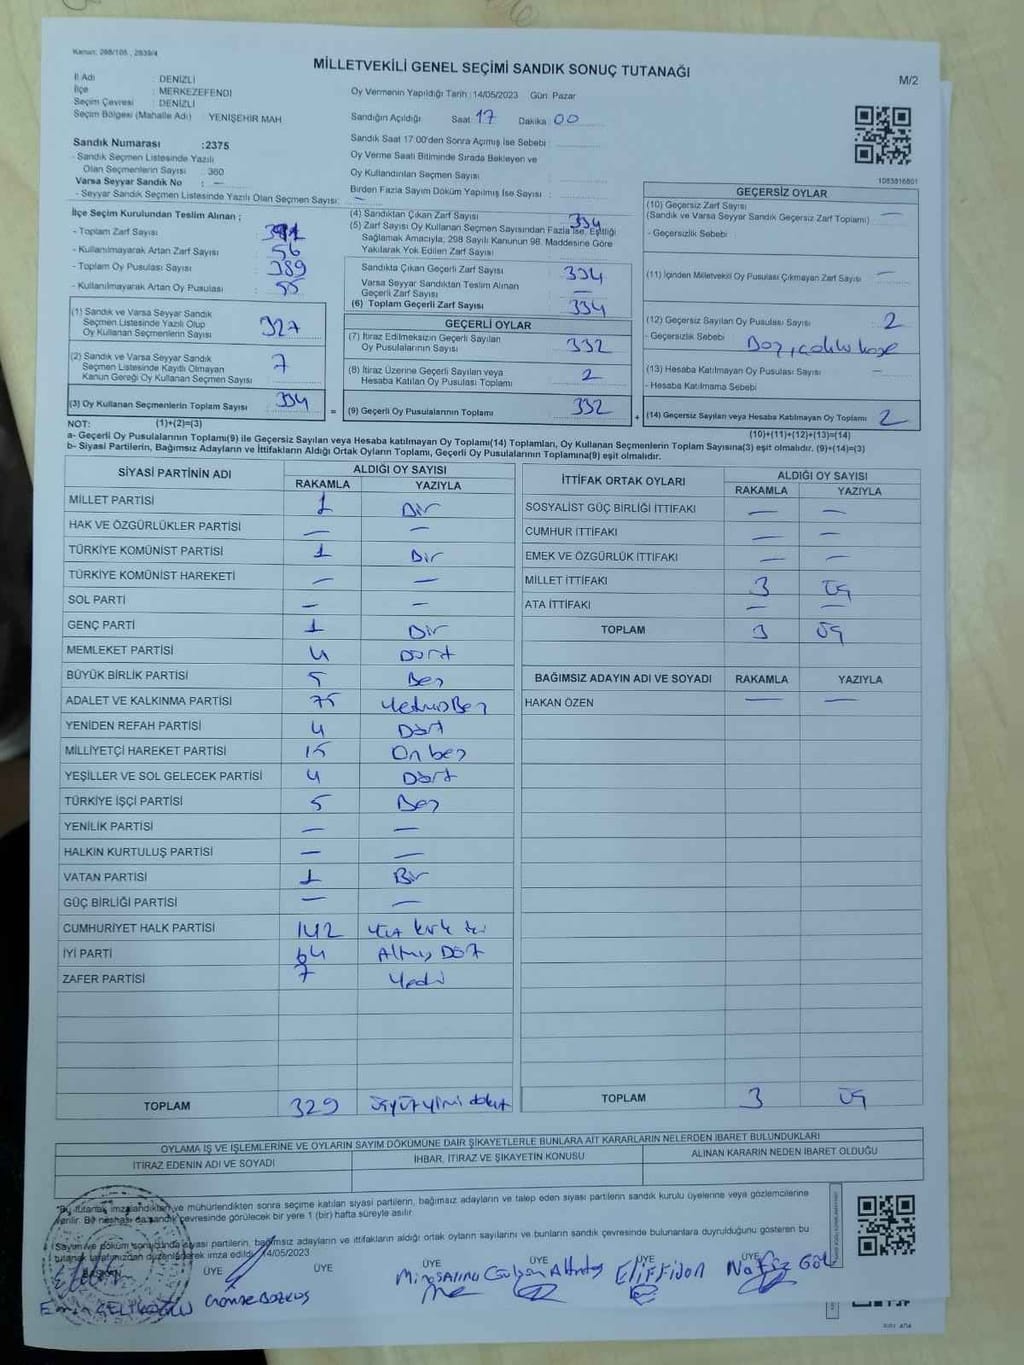 Kanun: 298/105 , 2839/4
MİLLETVEKİLİ GENEL SEÇİMİ SANDIK SONUÇ TUTANAĞI
M/2
İl Adı : DENİZLİ
İlçe : MERKEZEFENDİ
Seçim Çevresi : DENİZLİ
Seçim Bölgesi (Mahalle Adı) YENİŞEHİR MAH
Sandık Numarası :2375
- Sandık Seçmen Listesinde Yazılı
Olan Seçmenlerin Sayısı : 360
Varsa Seyyar Sandık No : —
- Seyyar Sandık Seçmen Listesinde Yazılı Olan Seçmen Sayısı: —
Oy Vermenin Yapıldığı Tarih : 14/05/2023 Gün: Pazar
Sandığın Açıldığı Saat 17 Dakika 00
Sandık Saat 17:00'den Sonra Açımış İse Sebebi :
Oy Verme Saati Bitiminde Sırada Bekleyen ve
Oy Kullandırılan Seçmen Sayısı :
Birden Fazla Sayım Döküm Yapılmış İse Sayısı :
İlçe Seçim Kurulundan Teslim Alınan ;
- Toplam Zarf Sayısı :
- Kullanılmayarak Artan Zarf Sayısı : 56
- Toplam Oy Pusulası Sayısı : 389
- Kullanılmayarak Artan Oy Pusulası : 55
(1) Sandık ve Varsa Seyyar Sandık
Seçmen Listesinde Yazılı Olup
Oy Kullanan Seçmenlerin Sayısı : 327
(2) Sandık ve Varsa Seyyar Sandık
Seçmen Listesinde Kayıtlı Olmayan
Kanun Gereği Oy Kullanan Seçmen Sayısı : 7
(3) Oy Kullanan Seçmenlerin Toplam Sayısı : 334
(4) Sandıktan Çıkan Zarf Sayısı : 334
(5) Zarf Sayısı Oy Kullanan Seçmen Sayısından Fazla ise, Eşitliği
Sağlamak Amacıyla; 298 Sayılı Kanunun 98. Maddesine Göre
Yakılarak Yok Edilen Zarf Sayısı :
Sandıkta Çıkan Geçerli Zarf Sayısı : 334
Varsa Seyyar Sandıktan Teslim Alınan
Geçerli Zarf Sayısı : —
(6) Toplam Geçerli Zarf Sayısı : 334
GEÇERLİ OYLAR
(7) İtiraz Edilmeksizin Geçerli Sayılan
Oy Pusulalarının Sayısı : 332
(8) İtiraz Üzerine Geçerli Sayılan veya
Hesaba Katılan Oy Pusulası Toplamı : 2
= (9) Geçerli Oy Pusulalarının Toplamı : 332
1083816801
GEÇERSİZ OYLAR
(10) Geçersiz Zarf Sayısı : —
(Sandık ve Varsa Seyyar Sandık Geçersiz Zarf Toplamı)
- Geçersizlik Sebebi :
(11) İçinden Milletvekili Oy Pusulası Çıkmayan Zarf Sayısı : —
(12) Geçersiz Sayılan Oy Pusulası Sayısı : 2
- Geçersizlik Sebebi : Boz,
(13) Hesaba Katılmayan Oy Pusulası Sayısı : —
- Hesaba Katılmama Sebebi :
+ (14) Geçersiz Sayılan veya Hesaba Katılmayan Oy Toplamı : 2
NOT: (1)+(2)=(3)
(10)+(11)+(12)+(13)=(14)
a- Geçerli Oy Pusulalarının Toplamı(9) ile Geçersiz Sayılan veya Hesaba katılmayan Oy Toplamı(14) Toplamları, Oy Kullanan Seçmenlerin Toplam Sayısına(3) eşit olmalıdır. (9)+(14)=(3)
b- Siyasi Partilerin, Bağımsız Adayların ve İttifakların Aldığı Ortak Oyların Toplamı, Geçerli Oy Pusulalarının Toplamına(9) eşit olmalıdır.
SİYASİ PARTİNİN ADI ALDIĞI OY SAYISI
RAKAMLA YAZIYLA
MİLLET PARTİSİ 1 Bir
HAK VE ÖZGÜRLÜKLER PARTİSİ — —
TÜRKİYE KOMÜNİST PARTİSİ 1 Bir
TÜRKİYE KOMÜNİST HAREKETİ — —
SOL PARTİ — —
GENÇ PARTİ 1 Bir
MEMLEKET PARTİSİ 4 Dört
BÜYÜK BİRLİK PARTİSİ 5 Beş
ADALET VE KALKINMA PARTİSİ 75 YetmişBeş
YENİDEN REFAH PARTİSİ 4 Dört
MİLLİYETÇİ HAREKET PARTİSİ 15 On beş
YEŞİLLER VE SOL GELECEK PARTİSİ 4 Dört
TÜRKİYE İŞÇİ PARTİSİ 5 Beş
YENİLİK PARTİSİ — —
HALKIN KURTULUŞ PARTİSİ — —
VATAN PARTİSİ 1 Bir
GÜÇ BİRLİĞİ PARTİSİ — —
CUMHURİYET HALK PARTİSİ 142 Yüz kırk iki
İYİ PARTİ 64 Altmış Dört
ZAFER PARTİSİ 7 Yedi
TOPLAM 329 üçyüzyirmi dokuz
İTTİFAK ORTAK OYLARI ALDIĞI OY SAYISI
RAKAMLA YAZIYLA
SOSYALİST GÜÇ BİRLİĞİ İTTİFAKI — —
CUMHUR İTTİFAKI — —
EMEK VE ÖZGÜRLÜK İTTİFAKI — —
MİLLET İTTİFAKI 3 üç
ATA İTTİFAKI — —
TOPLAM 3 üç
BAĞIMSIZ ADAYIN ADI VE SOYADI RAKAMLA YAZIYLA
HAKAN ÖZEN — —
TOPLAM 3 üç
OYLAMA İŞ VE İŞLEMLERİNE VE OYLARIN SAYIM DÖKÜMÜNE DAİR ŞİKAYETLERLE BUNLARA AİT KARARLARIN NELERDEN İBARET BULUNDUKLARI
İTİRAZ EDENİN ADI VE SOYADI İHBAR, İTİRAZ VE ŞİKAYETİN KONUSU ALINAN KARARIN NEDEN İBARET OLDUĞU
*Bu tutanak imzalandıktan ve mühürlendikten sonra seçime katılan siyasi partilerin, bağımsız adayların ve talep eden siyasi partilerin sandık kurulu üyelerine veya gözlemcilerine
verilir. Bir nüshası da sandık çevresinde görülecek bir yere 1 (bir) hafta süreyle asılır.
Sayım ve döküm sonucunda siyasi partilerin, bağımsız adayların ve ittifakların aldığı ortak oyların sayılarını ve bunların sandık çevresinde bulunanlara duyrulduğunu gösteren bu
tutanak tarafımızdan düzenlenerek imza edildi. 14/05/2023
ÜYE ÜYE ÜYE ÜYE ÜYE ÜYE
Emin ÇELİKOĞLU BOZKUŞ Gülşen Elif Fidan Nafiz Göl